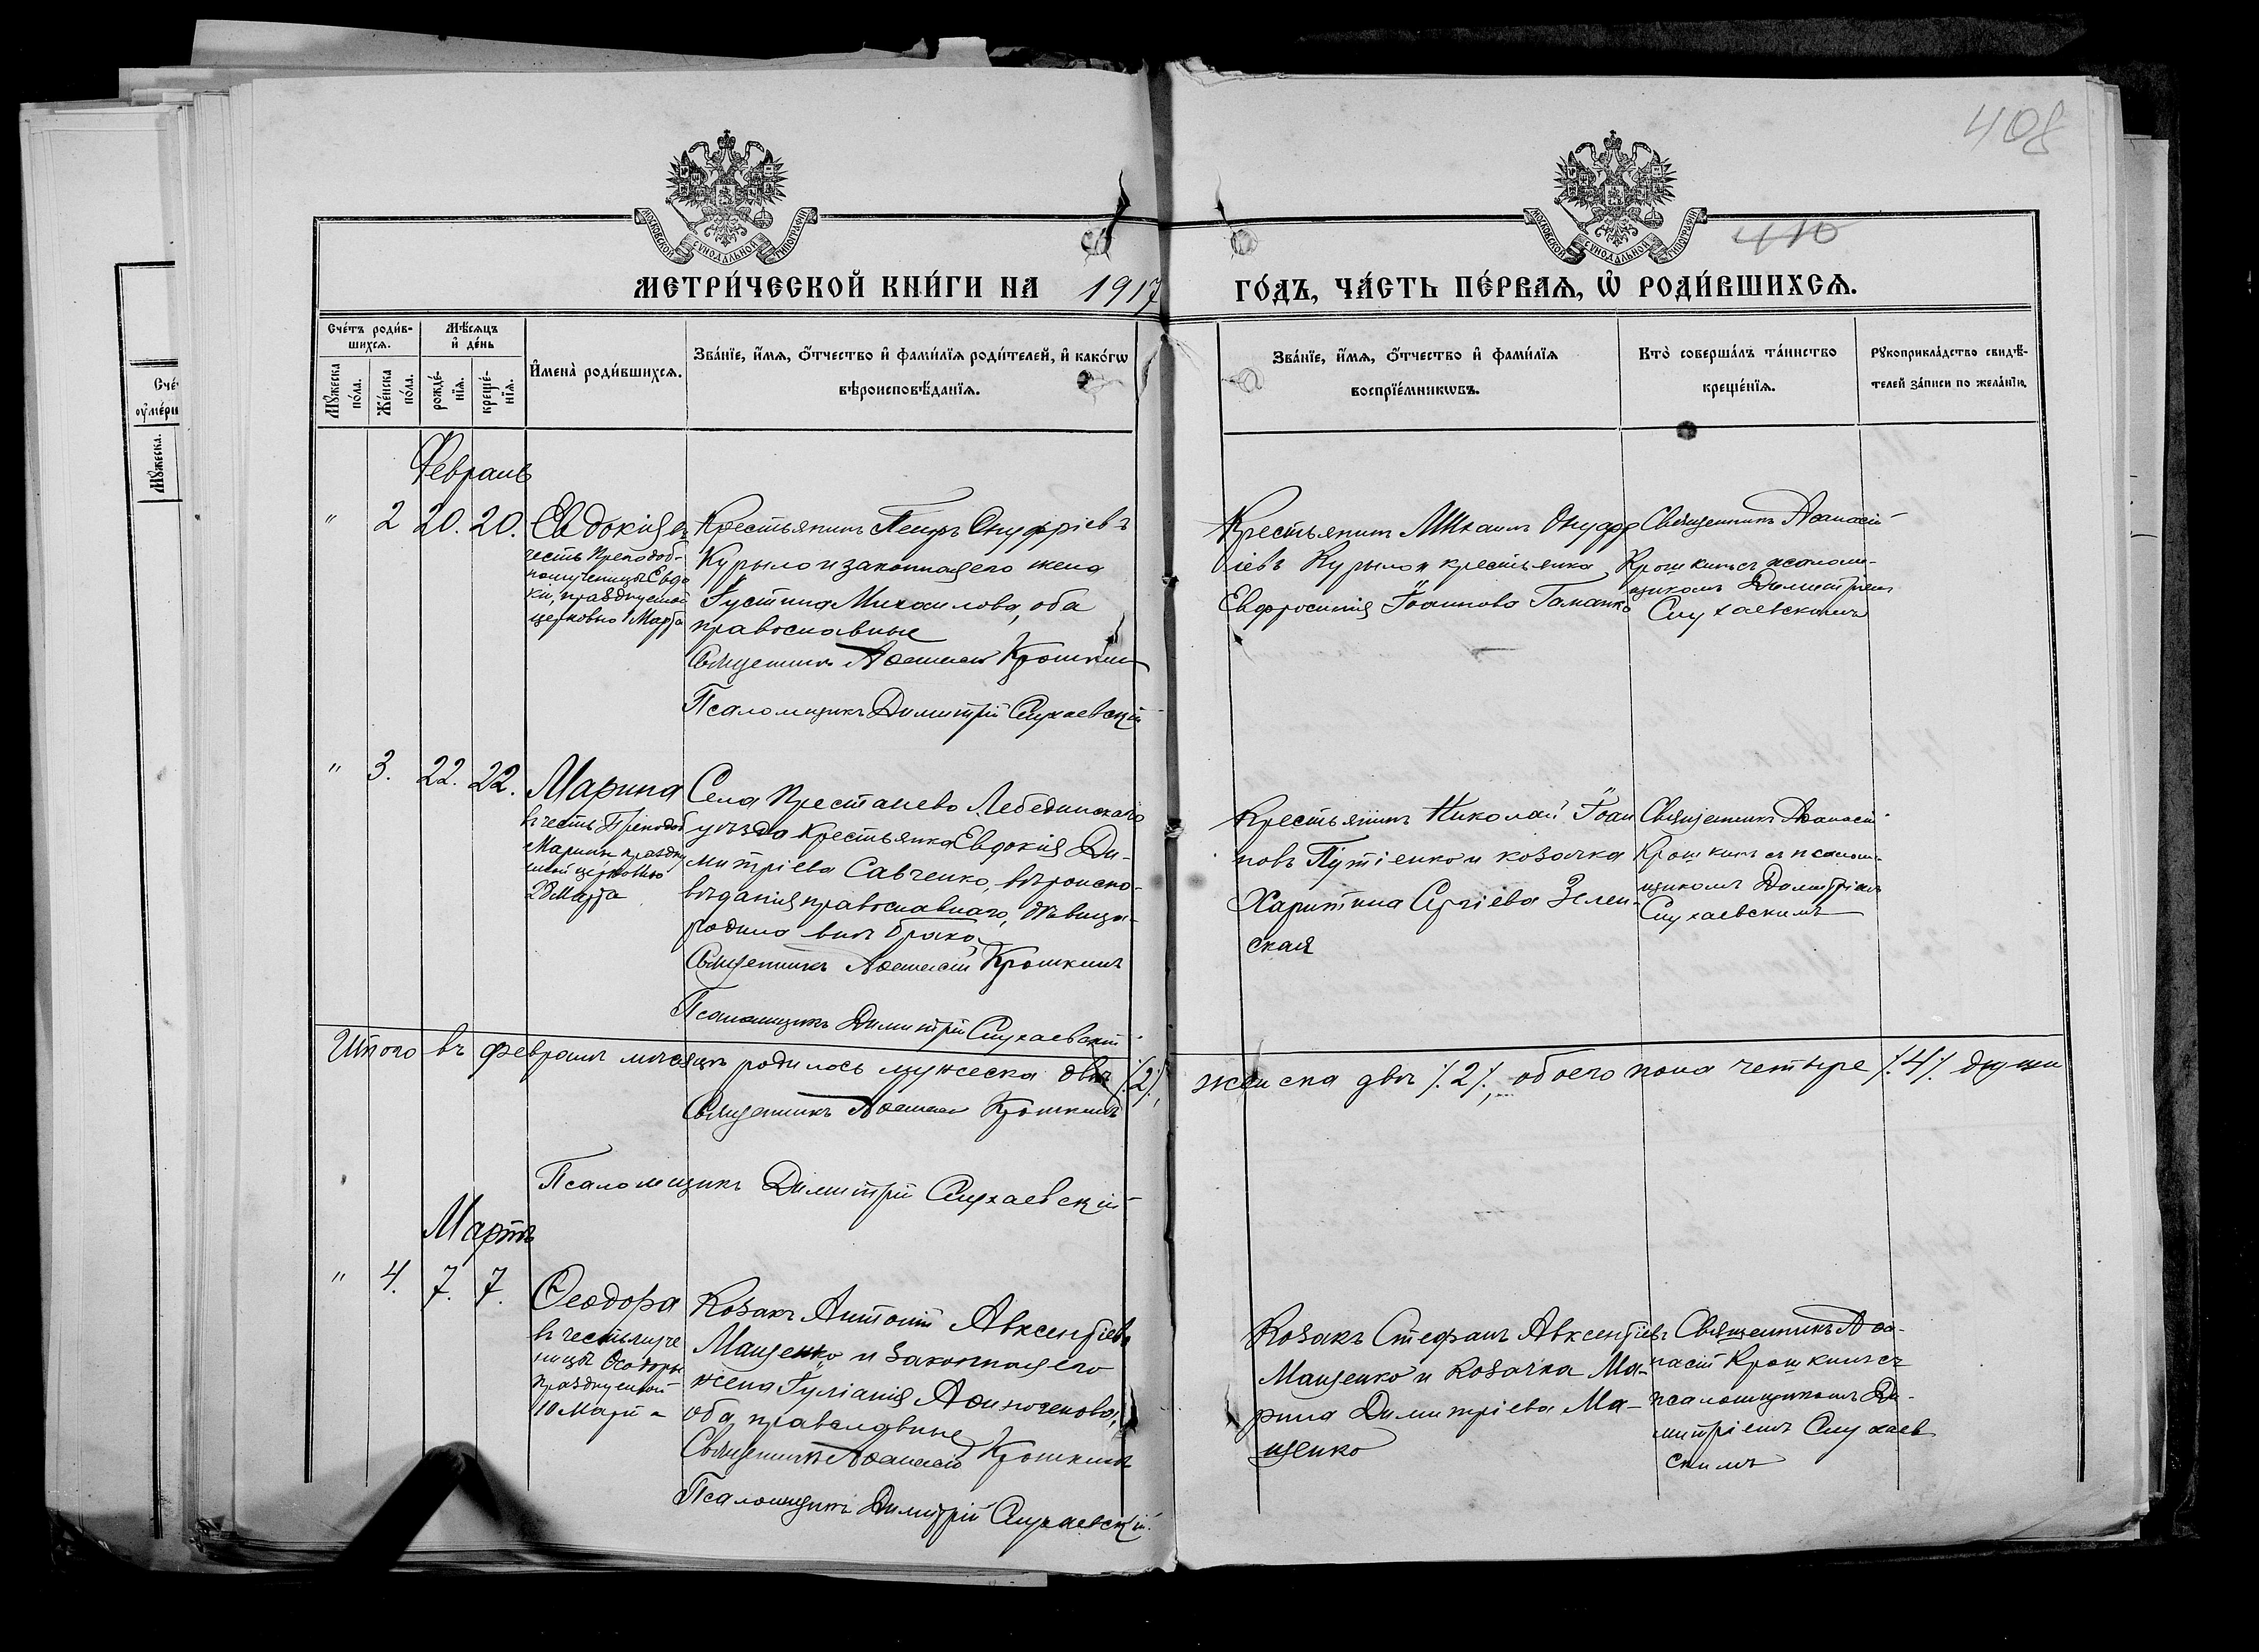 408
410
МОСКОВСКОЙ СѴНОДАЛЬНОЙ ТИПОГРАФІИ
МОСКОВСКОЙ СѴНОДАЛЬНОЙ ТИПОГРАФІИ
МЕТРИ́ЧЕСКОЙ КНИ́ГИ НА 1917 ГО́ДЪ, ЧА́СТЬ ПЕ́РВАЯ, Ѡ҆ РОДИ́ВШИХСѦ.
Сче́тъ роди́в-
шихсѧ.
Мꙋ́жеска
по́ла.
Же́нска
по́ла.
Мѣ́сѧцъ
и҆ де́нь
рожде́-
нїѧ.
креще́-
нїѧ.
И҆мена̀ роди́вшихсѧ.
Зва́нїе, и҆́мѧ, ѻ҆́тчество и҆ фами́лїѧ роди́телей, и҆ како́гѡ
вѣроисповѣ́данїѧ.
Зва́нїе, и҆́мѧ, ѻ҆́тчество и҆ фами́лїѧ
воспрїе́мникѡвъ.
Кто̀ соверша́лъ та́инство
креще́нїѧ.
Рꙋкоприкла́дство свидѣ́-
телей за́писи по жела́нїю.
Февраль
" 2 20. 20.
Евдокія въ
честь Преподоб-
номученицы Евдо
кіи, празднуемой
церковью 1 Марта
Крестьянинъ Петръ Онуфріевъ
Курыло и законная его жена
Іустина Михаилова, оба
православные
Священникъ Аѳанасій Крошкинъ
Псаломщикъ Димитрій Слухаевскій
Крестьянинъ Михаилъ Онуфр
іевъ Курыло и крестьянка
Евфросинія Іоаннова Гаманко
Священникъ Аѳанасій
Крошкинъ съ псалом-
щикомъ Димитріемъ
Слухаевскимъ
" 3. 22. 22.
Марина
въ честь Преподоб
Марины праздну
емой церковью
28 Марта
Села Лебединскаго
уѣзда Крестьянка Евдокія Ди-
митріева Савченко, вѣроиспо-
вѣданія православнаго, дѣвица
родила внѣ брака
Священникъ Аѳанасій Крошкинъ
Псаломщикъ Димитрій Слухаевскій
Крестьянинъ Николай Іоан
новъ Путіенко и козачка
Харитина Сергіева Зелен-
ская
Священникъ Аѳанасій
Крошкинъ съ псалом-
щикомъ Димитріемъ
Слухаевскимъ
Итого въ февралѣ мѣсяцѣ родилось мужеска двѣ /.2/., женска двѣ /.2/., обоего пола четыре /.4/. души
Священникъ Аѳанасій Крошкинъ
Псаломщикъ Димитрій Слухаевскій
Мартъ
" 4. 7. 7.
Ѳеодора
въ честь муче
ницы Ѳеодоры
празднуемой
10 Марта
Козакъ Антоній Авксентіевъ
Мащенко и законная его
жена Іуліанія Аѳиногенова,
оба православные
Священникъ Аѳанасій Крошкинъ
Псаломщикъ Димитрій Слухаевскій.
Козакъ Стефанъ Авксентіевъ
Мащенко и козачка Ма-
рина Димитріева Ма-
щенко
Священникъ Аѳа-
насій Крошкинъ съ
псаломщикомъ Ди-
митріемъ Слухаев
скимъ